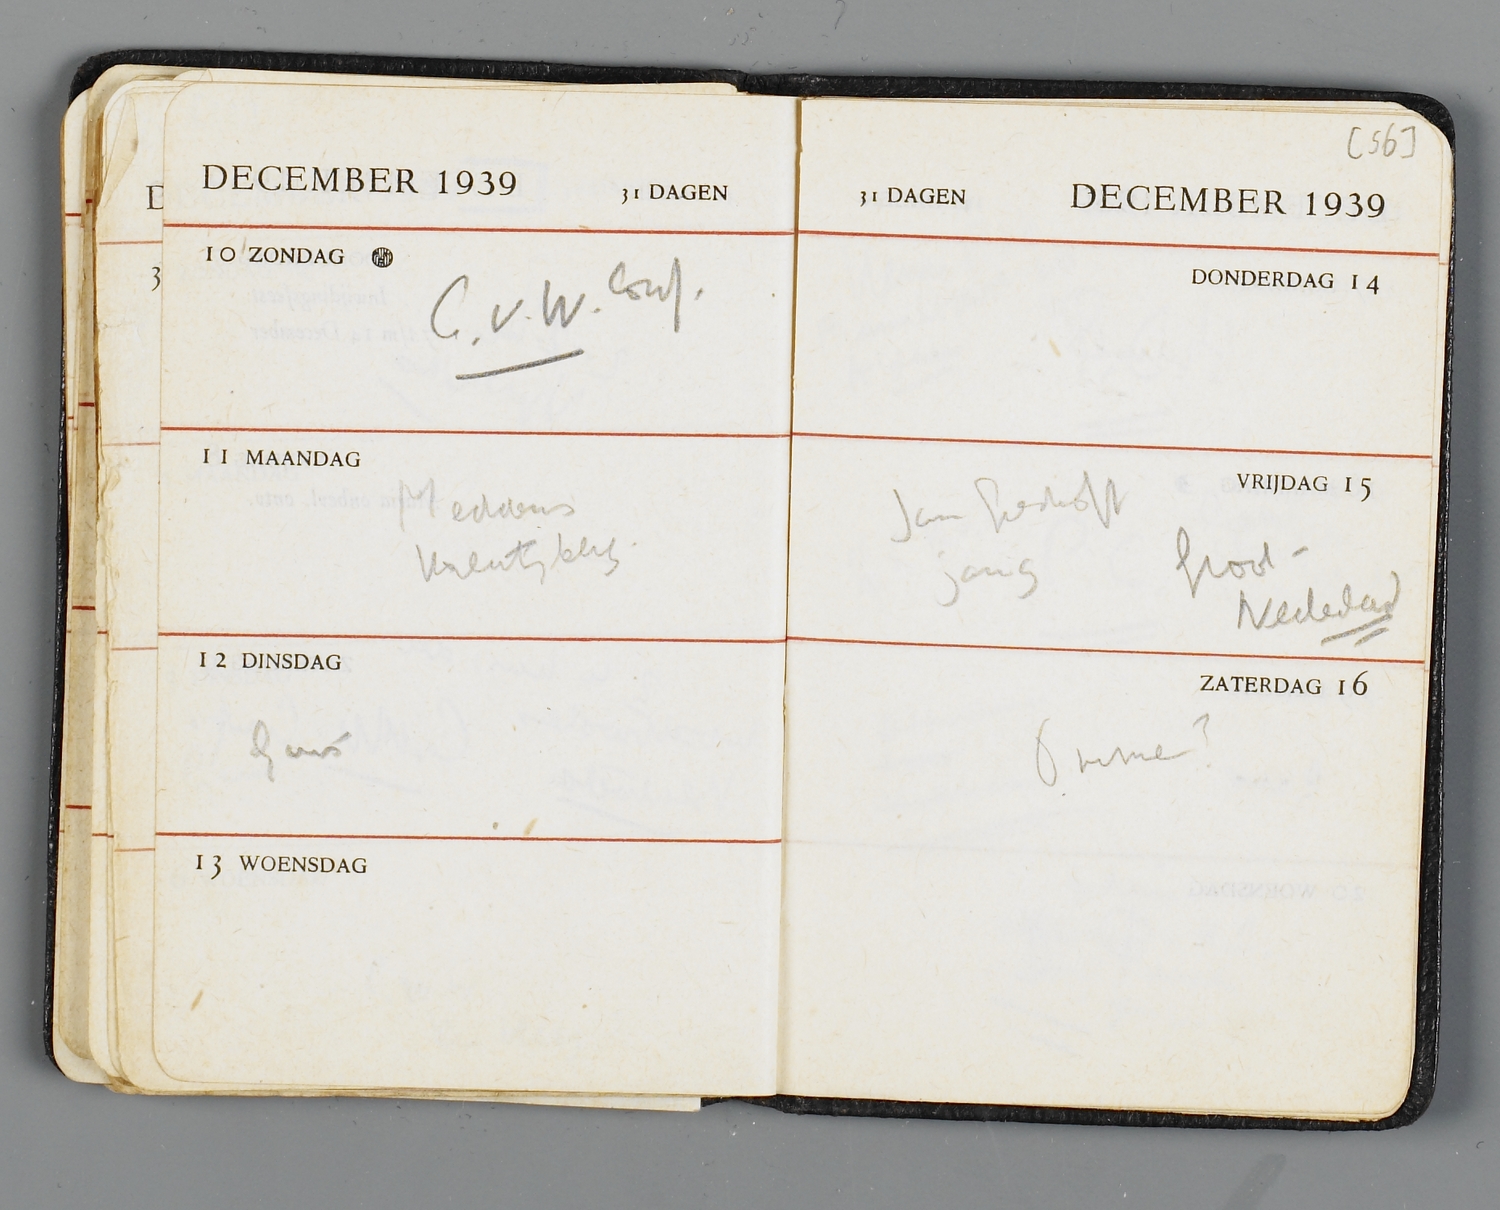 DECEMBER 1939 31 DAGEN
10 ZONDAG
C. v. W. Conf.
11 MAANDAG
Meddens
12 DINSDAG
13 WOENSDAG
[56]
31 DAGEN DECEMBER 1939
DONDERDAG 14
VRIJDAG 15
Jan Greshoff
jarig
Groot-
Nederland
ZATERDAG 16